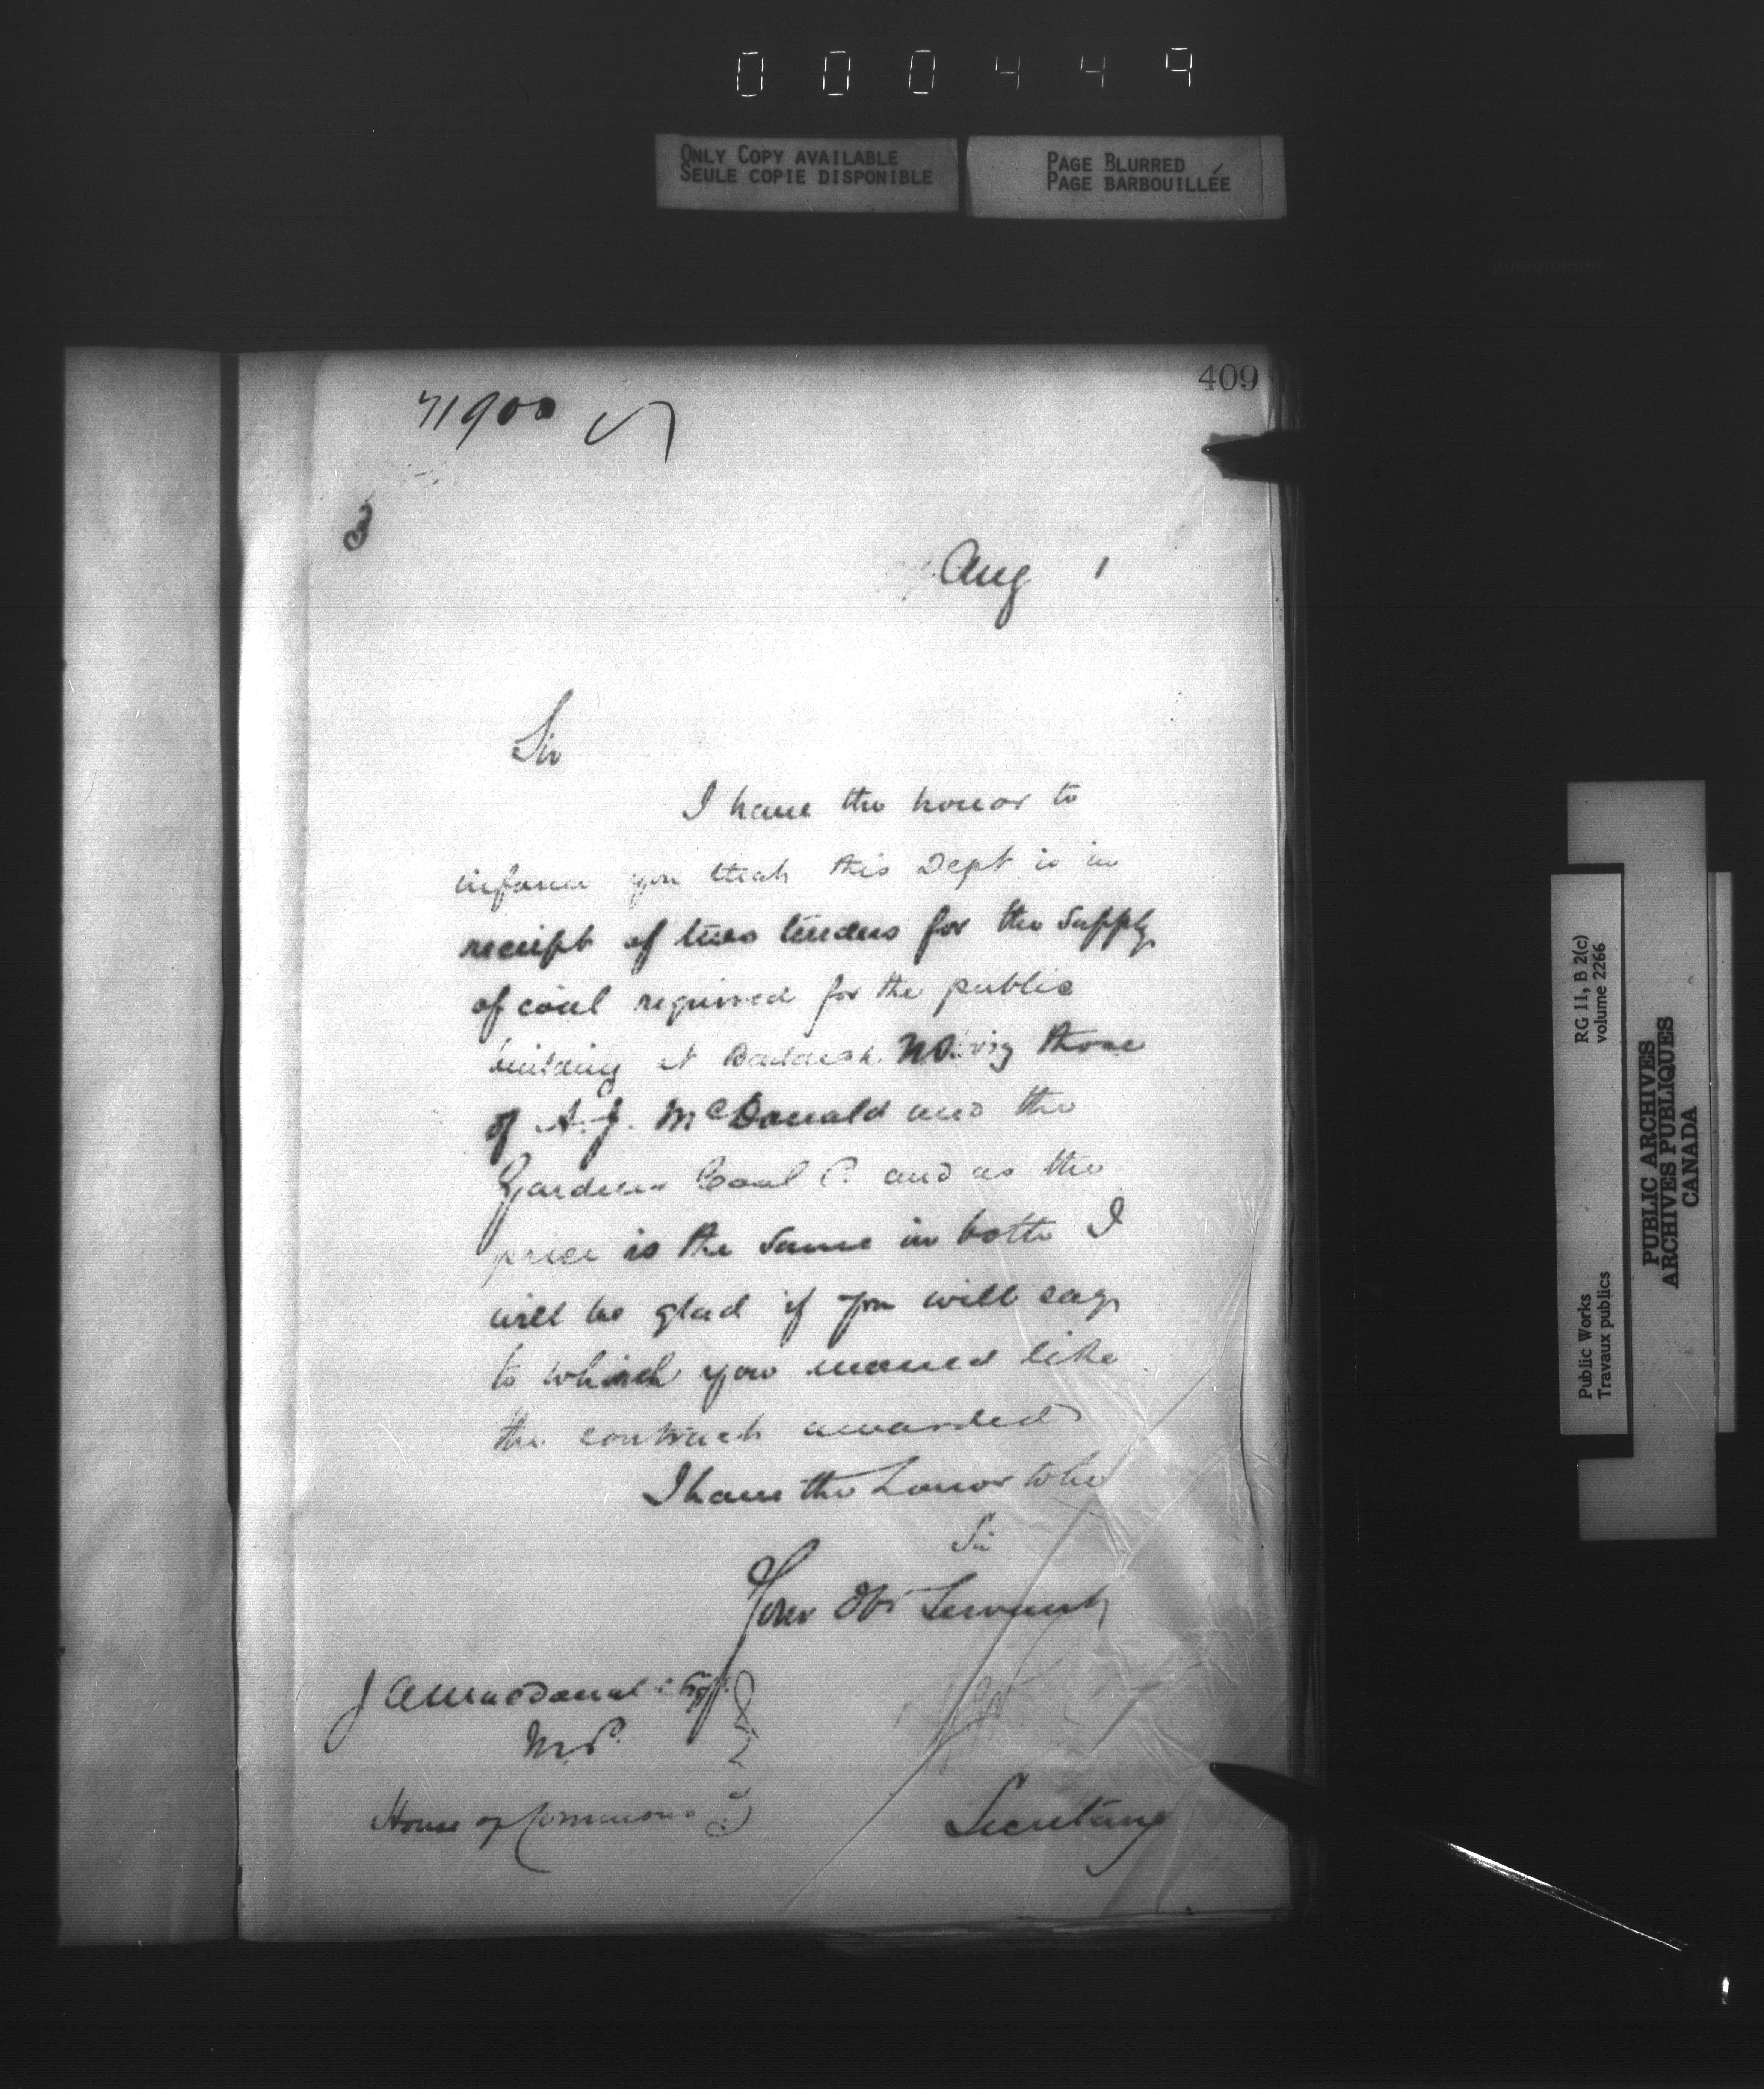 000449
ONLY COPY AVAILABLE
SEULE COPIE DISPONIBLE
PAGE BLURRED
PAGE BARBOUILLÉE
409
71900
3
Aug 1
Sir
I have the honor to
inform you that this Dept is in
receipt of two tenders for the supply
of coal required for the public
building at Baddeck N.S. viz those
of A. J. McDonald and the
Gardener Coal Co and as the
price is the same in both I
will be glad if you will say
to which you would like
the contract awarded
I have the honor to be
Sir
Your Obt Servant
J A Macdonald Esq
M.P.
House of Commons
Secretary
RG 11, B 2(c)
volume 2266
Public Works
Travaux publics
PUBLIC ARCHIVES
ARCHIVES PUBLIQUES
CANADA